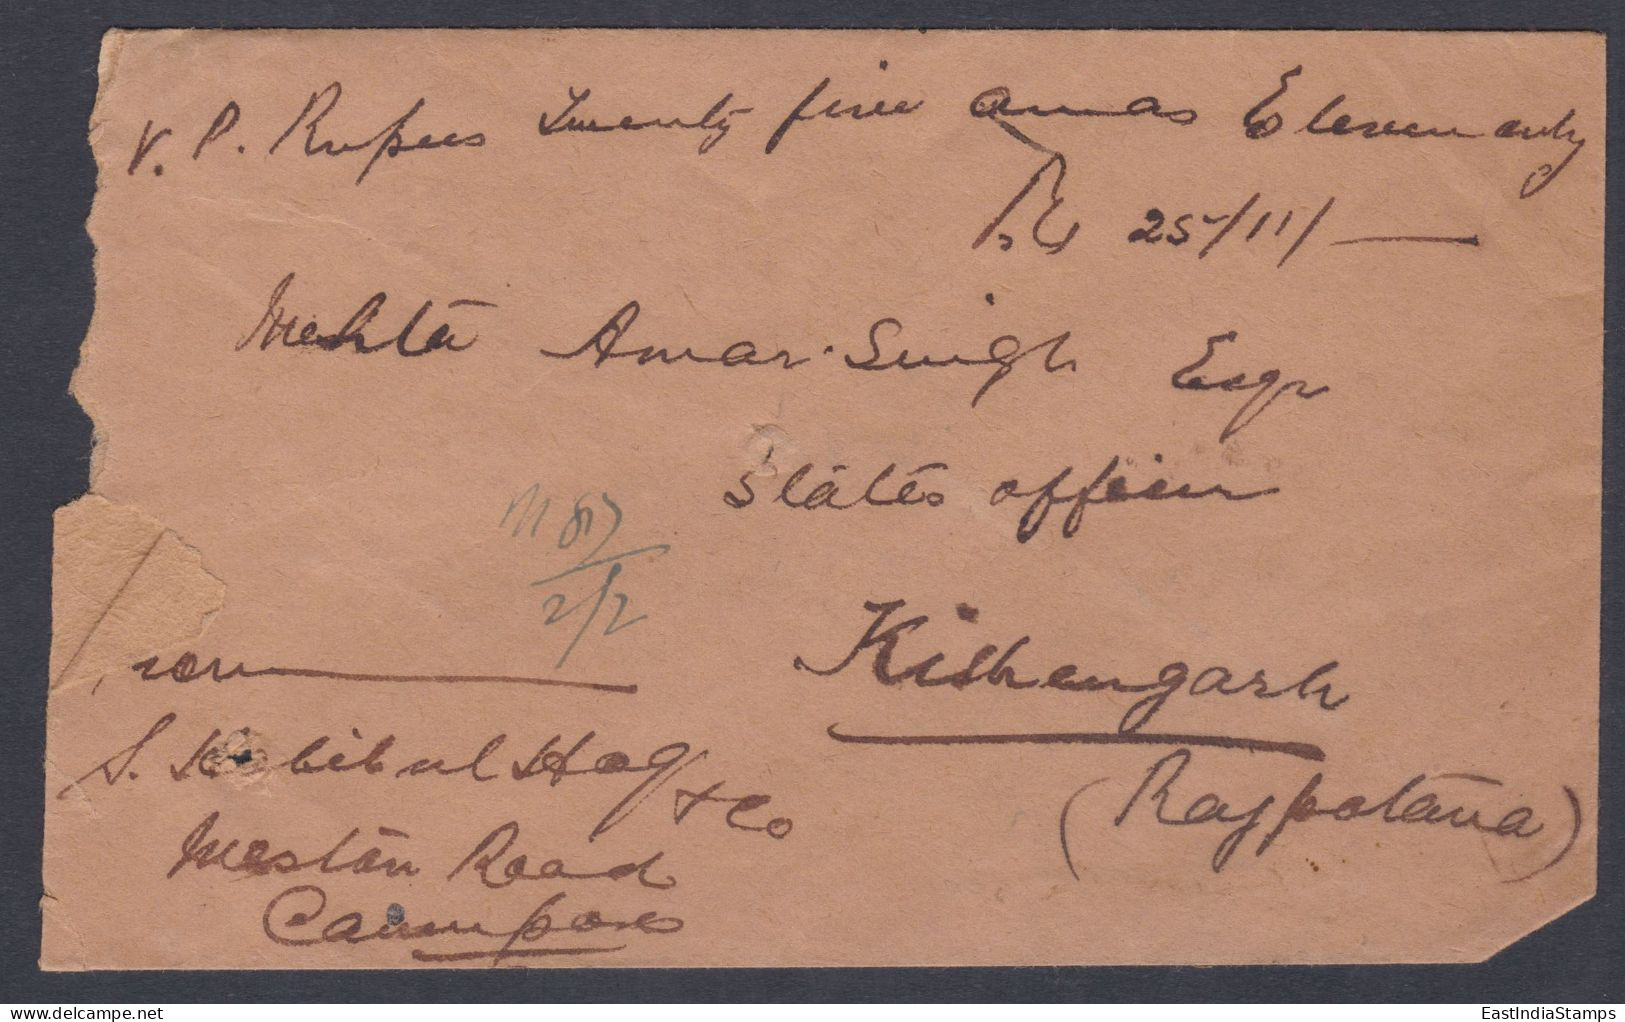 V. P. Rupees Twenty five annas Eleven only
Rs 25/11/—
Mehta Amar Singh Esqr
States officer
M 87
2/2
Kishengarh
(Rajpotana)
S. Habibul Haq
& Co
Meston Road
Cawnpore
delcampe.net
EastIndiaStamps